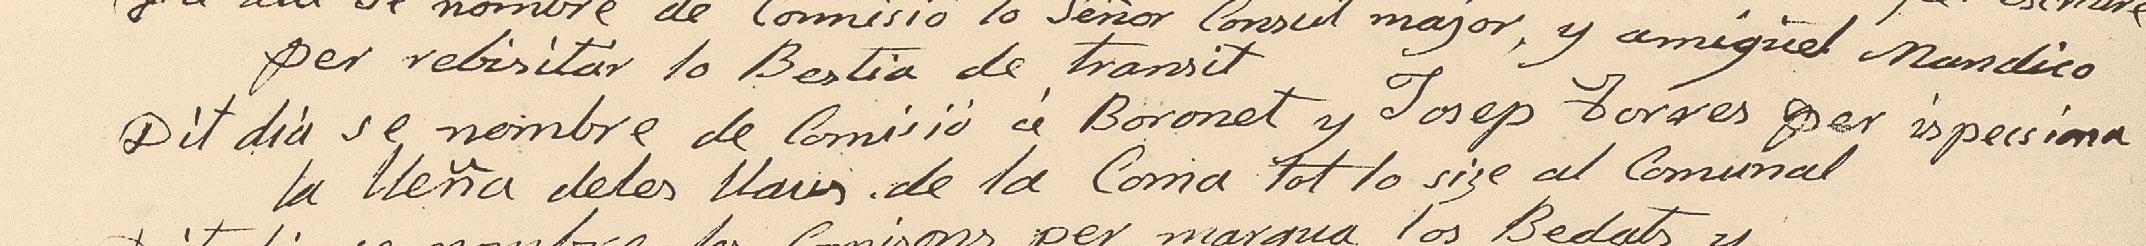 Dit dia se nombre de Comisió lo Señor Consul major, y amiguel Mandico
per rebisitar lo Bestia de transit
Dit dia se nombre de Comisió á Boronet y Josep Torres per ispecsiona
la lleña deles llaus de la Coma tot lo size al Comunal
Dit dia se nombre los Comisons per marqua los Bedats y